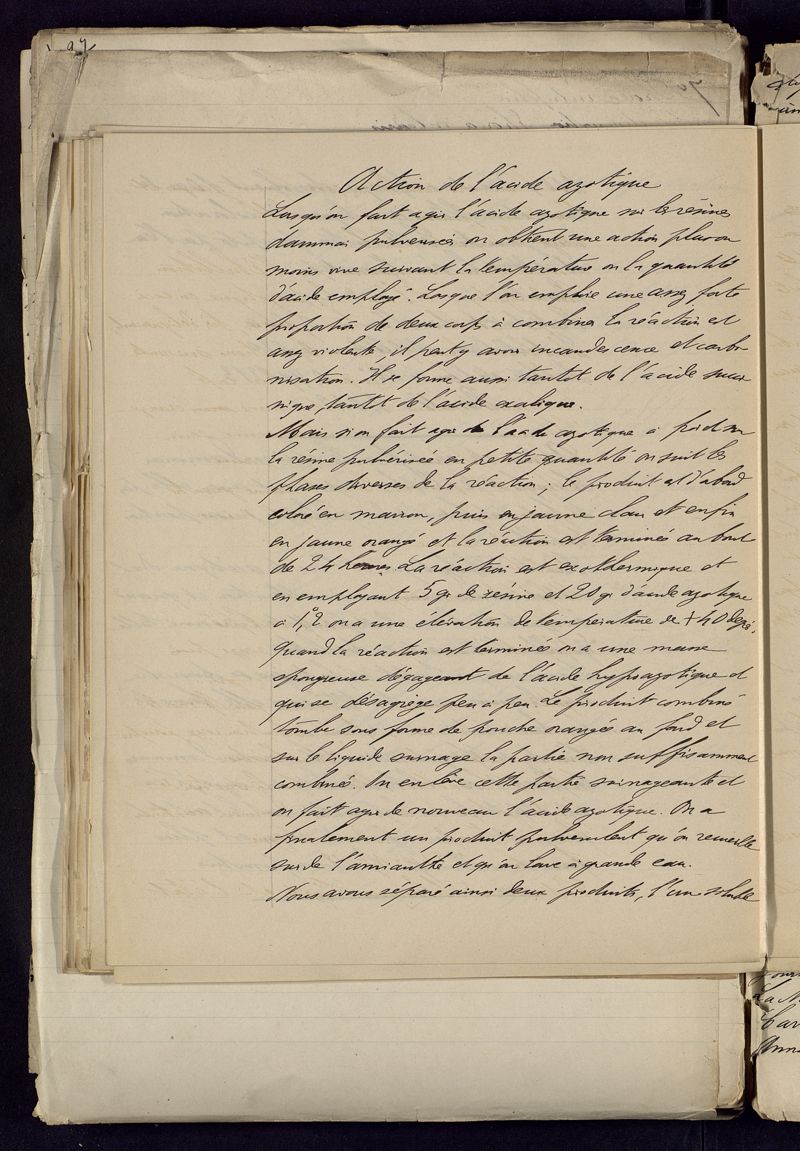 97
Action de l'acide azotique
Lorsqu'on fait agir l'acide azotique sur les résines
dammar pulverisées on obtient une action plus ou
moins vive suivant la température ou la quantité
d'acide employé. Lorsque l'on emploie une assez forte
proportion de deux corps à combiner la réaction est
assez violente, il peut y avoir incandescence et carbo
nisation. Il se forme aussi tantot de l'acide succi
nique, tantot de l'acide oxalique.
Mais si on fait agir de l'acide azotique à froid sur
la résine pulvérisée en petite quantité on suit les
phases diverses de la réaction; le produit est d'abord
coloré en marron, puis en jaune clair et enfin
en jaune orangé et la réaction est terminée au bout
de 24 heures. La réaction est exothermique et
en employant 5 gr de résine et 20 gr d'acide azotique
à 1,2 on a une élévation de température de + 40 degrés.
Quand la réaction est terminée on a une masse
spongieuse dégageant de l'acide hypoazotique et
qui se désagrège peu à peu. Le produit combiné
tombe sous forme de poudre orangée au fond et
sur le liquide surnage la partie non suffisamment
combinée. On enlève cette partie surnageante et
on fait agir de nouveau l'acide azotique. On a
finalement un produit pulverulent qu'on recueille
sur de l'amianthe et qu'on lave à grande eau.
Nous avons séparé ainsi deux produits, l'un soluble